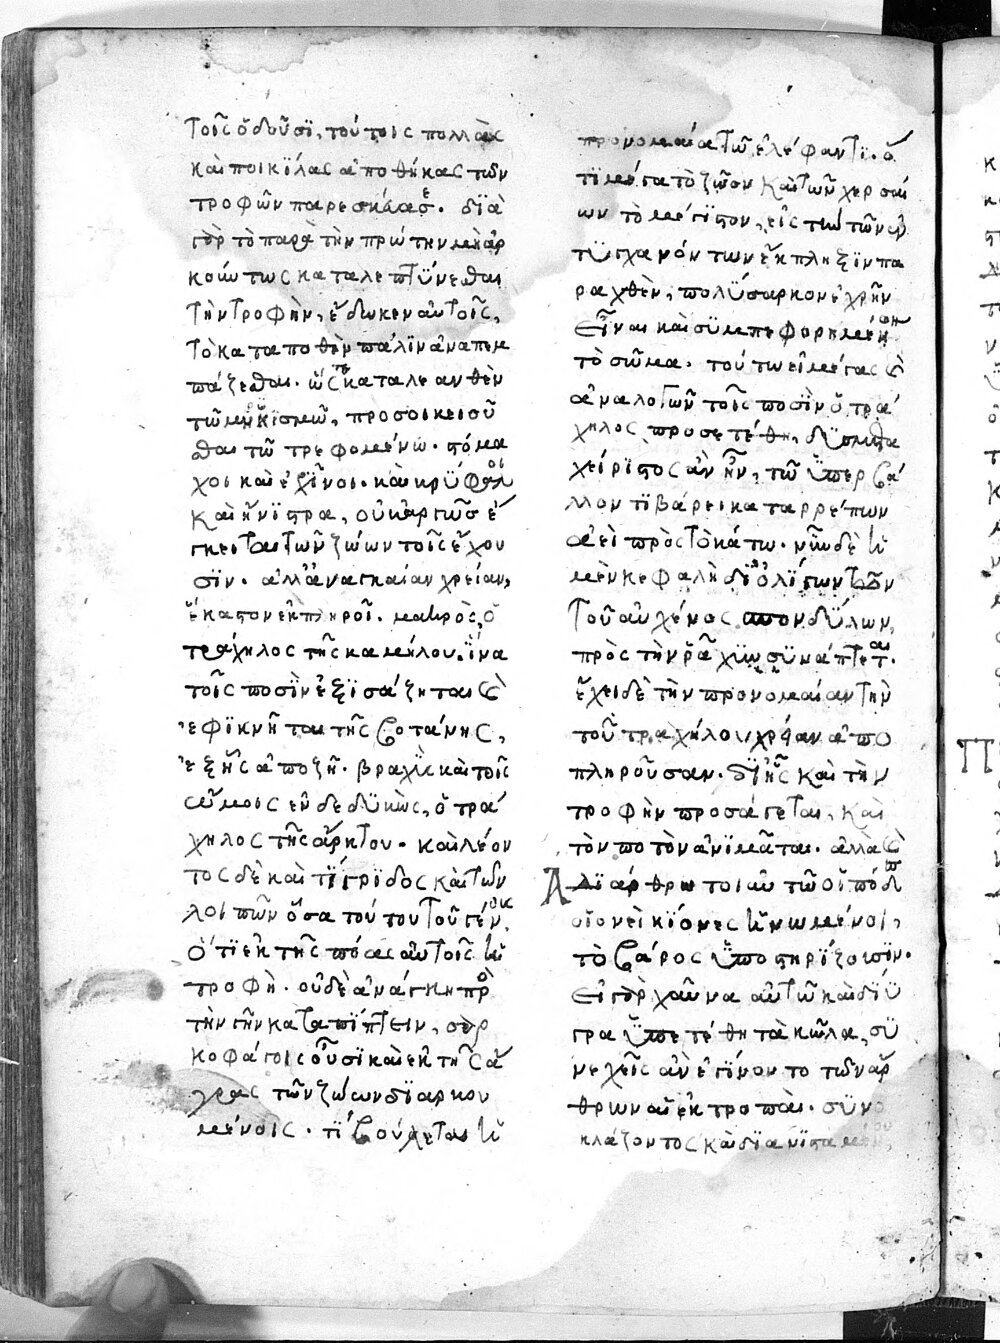 τοῖς ὀδοῦσϊ, τούτοις πολλὰς
καὶ ποικϊλας ἀποθήκας τῶν
τροφῶν παρεσκεύασε. δϊὰ
γὰρ τὸ παρὰ τὴν πρώτην μὴ ἀρ
κούντως καταλεπτΰνεσθαι
τὴν τροφὴν, ἔδωκεν αὐτοῖς,
τὸ καταποθὲν πάλϊν ἀναπεμ
πάζεσθαι. ὥστε καταλεανθὲν
τῶ μηρϋκισμῶ, προσοικειοῦ
σθαι τῶ τρεφομένω. στόμα
χοι καὶ ἐχῖνοι. καὶ κρϋφαλοι
καὶ ἤνϊστρα, οὐκ ἀργῶς ἔ
γκειται τῶν ζώων τοῖς ἔχου
σϊν. ἀλλ' ἀναγκαίαν χρείαν,
ἕκαστον ἐκπληροῖ. μακρὸς, ὁ
τράχηλος τῆς καμήλου. ἵνα
τοῖς ποσὶν ἐξϊσάζηται καὶ
ἐφϊκνῆται τῆς βοτάνης,
ἐξ ἧς ἀποζῆ. βραχὺς καὶ τοῖς
ὤμοις ἐνδεδϋκὼς, ὁ τρά
χηλος τῆς ἄρκτου. καὶ λέον
τος δὲ καὶ τΐγρϊδος καὶ τῶν
λοιπῶν ὅσα τούτου τοῦ γένους.
ὅτι ἐκ τῆς πόας αὐτοῖς ἡ
τροφὴ. οὐδὲ ἀνάγκη πρὸς
τὴν γῆν καταπίπτειν, σαρ
κοφάγοις οὖσϊ καὶ ἐκ τῆς ἄ
γρας τῶν ζώων δϊαρκου
μένοις. τί βούλεται ἡ
προνομαία τῶ ἐλέφαντϊ. ὅ
τϊ μέγα τὸ ζῶον καὶ τῶν χερσαί
ων τὸ μέγϊστον, εἰς τὴν τῶν ἐν
τϋγχανόντων ἔκπληξϊν πα
ραχθὲν, πολΰσαρκον ἐχρῆν
εἶναι καὶ σϋμπεφορημένον
τὸ σῶμα. τούτω εἰ μέγας καὶ
ἀναλογῶν τοῖς ποσὶν ὁ τρά
χηλος προσετέθη, δϋσμετα
χείρϊστος ἂν ἦν, τῶ ὑπερβά
λλοντϊ βάρει καταρρέπων
ἀεὶ πρὸς τὸ κάτω. νῦν δὲ ἡ
μὲν κεφαλὴ δι' ὀλίγων τῶν
τοῦ αὐχένος σπονδΰλων,
πρὸς τὴν ῥάχϊν σϋνάπτεται.
ἔχει δὲ τὴν προνομαίαν τὴν
τοῦ τραχήλου χρείαν ἀπο
πληροῦσαν. δϊ' ἧς καὶ τὴν
τροφὴν προσάγεται, καὶ
τὸν ποτὸν ἀνϊμᾶται. ἀλλὰ καὶ
Ἀδϊάρθρωτοι αὐτῶ οἱ πόδες
οἱονεὶ κίονες ἡνωμένοι,
τὸ βάρος ὑποστηρΐζουσϊν.
εἰ γὰρ χαῦνα αὐτῶ καὶ δι' ὑ
γρα ὑπετέθη τὰ κῶλα, σϋ
νεχεῖς ἂν ἐγίνοντο τῶν ἄρ
θρων αἱ ἐκτροπαὶ. σϋνο
κλάζοντος καὶ δϊανϊσταμένου,